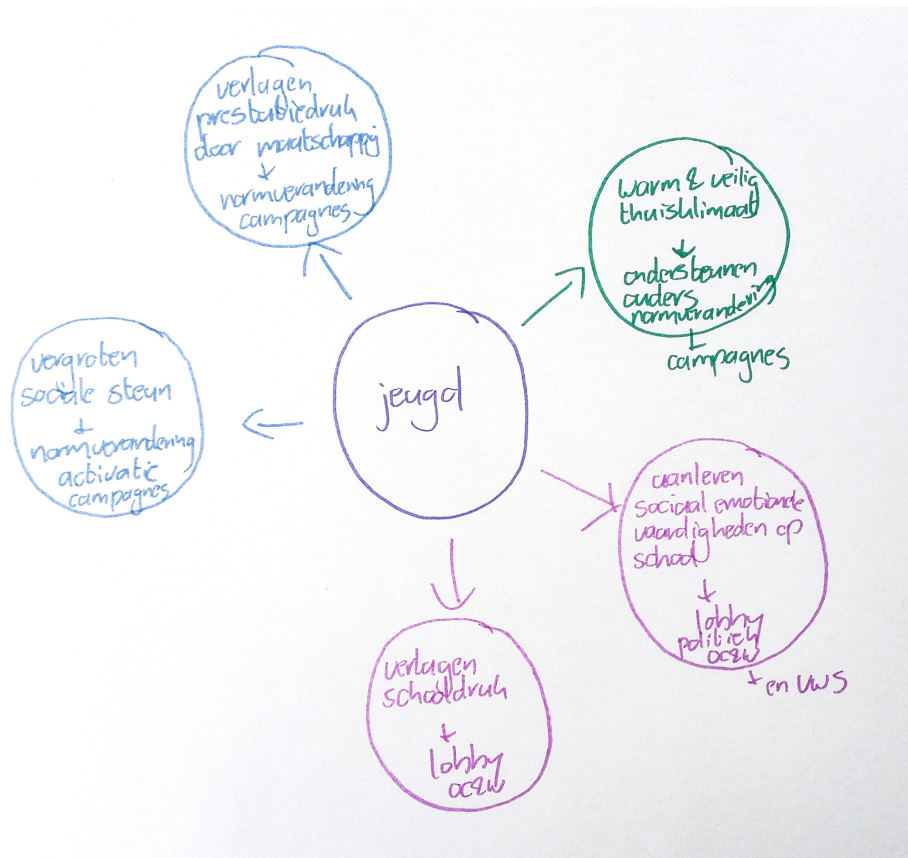 verlagen
prestatiedruk
door maatschappij
↓
normverandering
campagnes
warm & veilig
thuisklimaat
↓
ondersteunen
ouders
normverandering
↓
campagnes
jeugd
vergroten
sociale steun
↓
normverandering
activatie
campagnes
aanleren
sociaal emotionele
vaardigheden op
school
↓
lobby
politiek
OC&W
↓ en VWS
verlagen
schooldruk
↓
lobby
OC&W